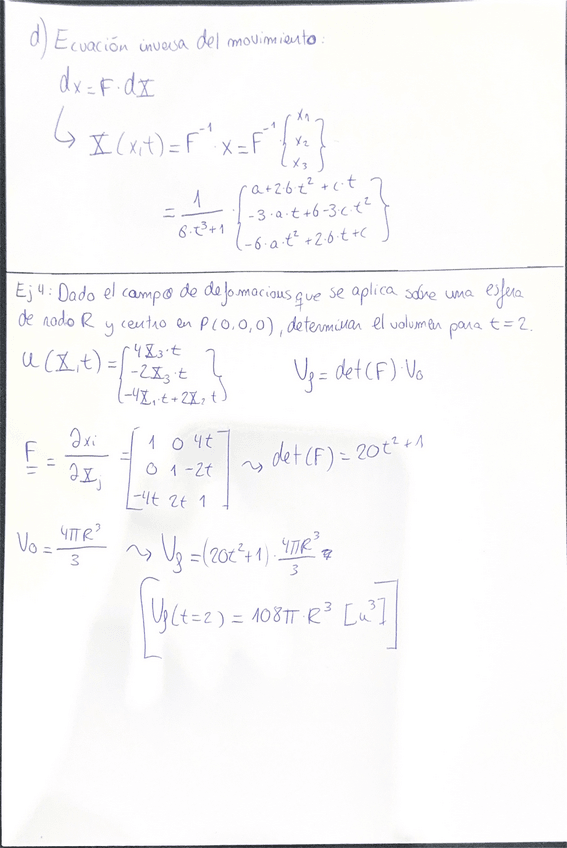 d) Ecuación inversa del movimiento:
dx = F · dX
↳ X(x,t) = F⁻¹ · x = F⁻¹ · {x₁ x₂ x₃}
= 1/(6·t³+1) · {a+2·b·t²+c·t
-3·a·t+b-3·c·t²
-6·a·t²+2·b·t+c}
Ej 4: Dado el campo de deformaciones que se aplica sobre una esfera
de radio R y centro en P(0,0,0), determinar el volumen para t = 2.
u(X,t) = {4X₃·t
-2X₃·t
-4X₁·t+2X₂t}
Vf = det(F) · V₀
F = ∂xi/∂Xj = [1 0 4t
0 1 -2t
-4t 2t 1] ⤳ det(F) = 20t²+1
V₀ = 4πR³/3 ⤳ Vf = (20t²+1) · 4πR³/3
[Vf(t=2) = 108π·R³ [u³]]